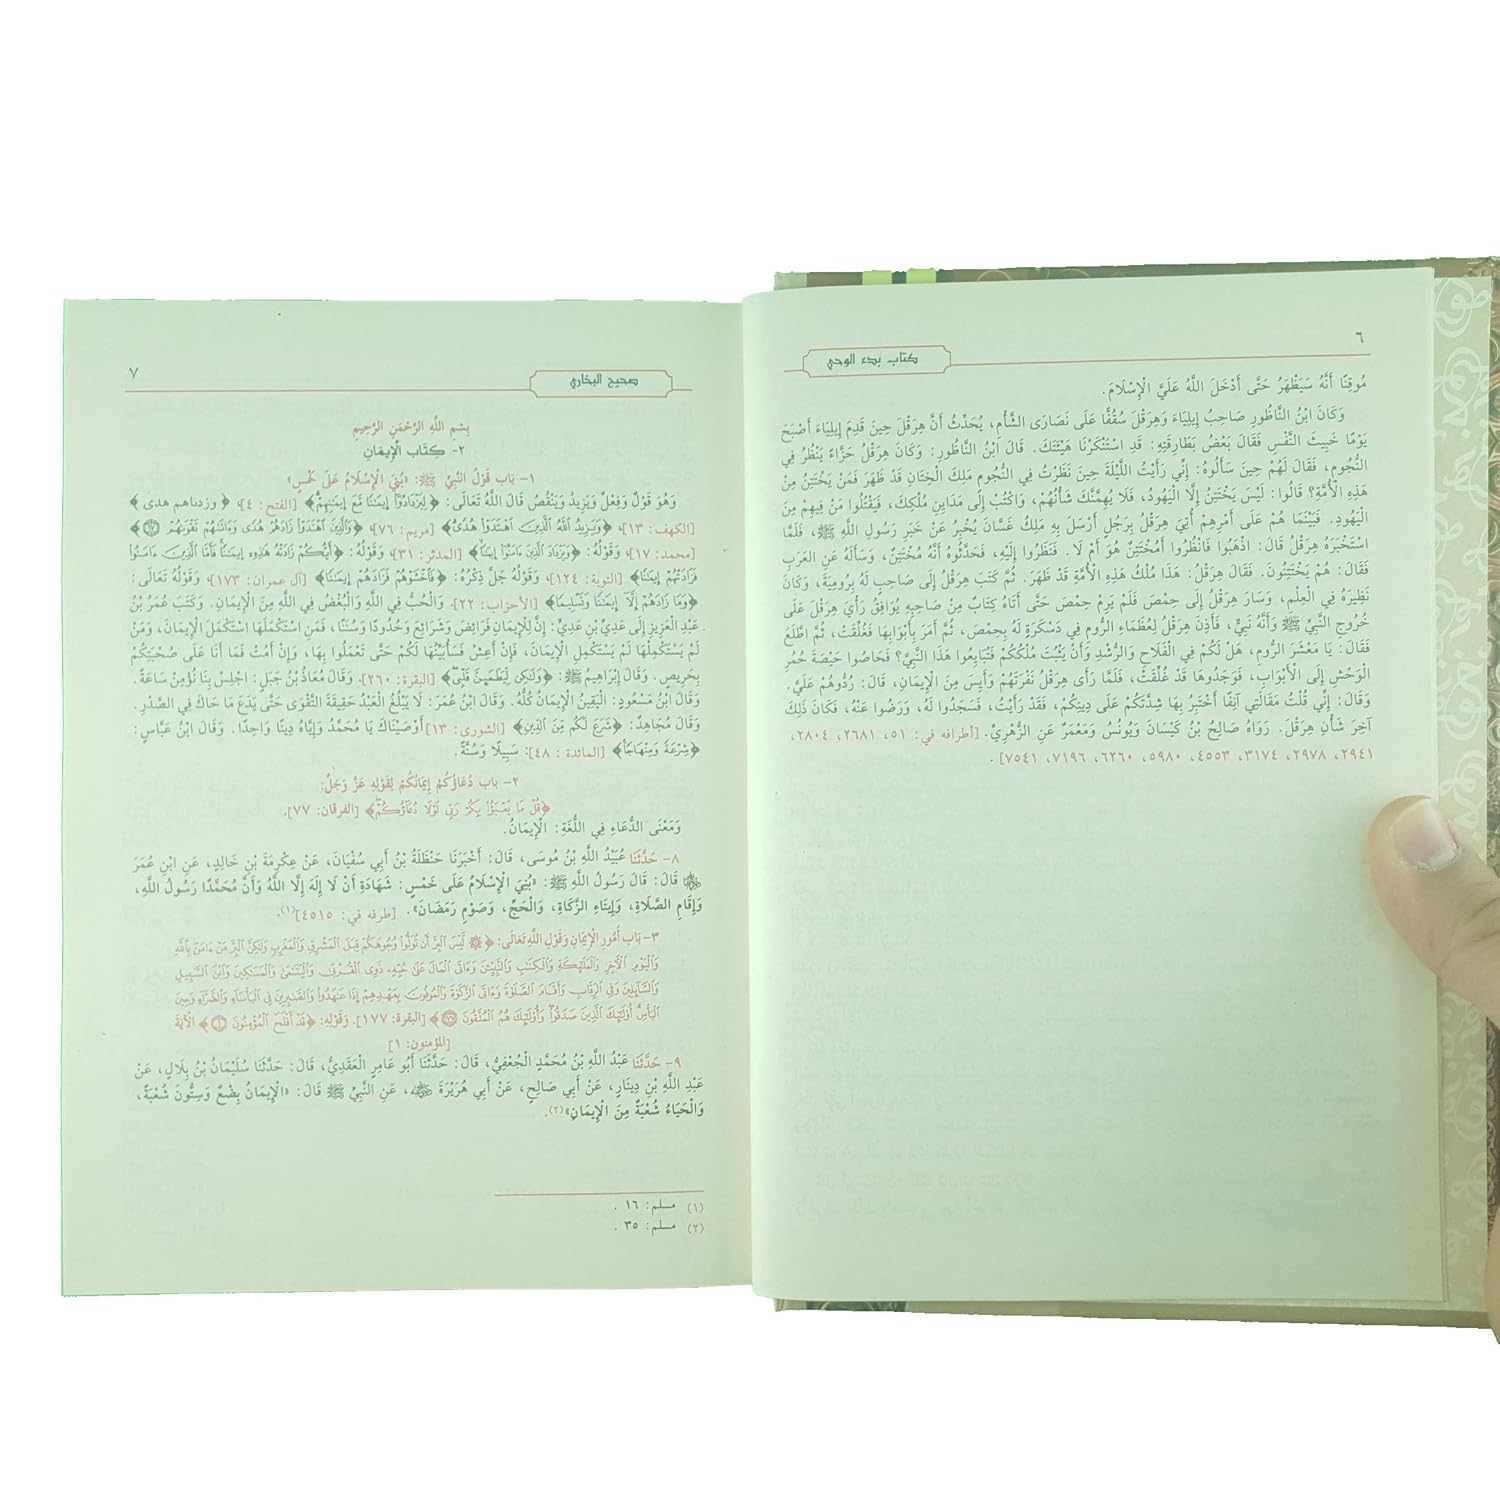 ٦
كتاب بدء الوحي
مُوقِنًا أَنَّهُ سَيَظْهَرُ حَتَّى أَدْخَلَ اللَّهُ عَلَيَّ الْإِسْلَامَ.
وَكَانَ ابْنُ النَّاطُورِ صَاحِبُ إِيلِيَاءَ وَهِرَقْلَ سُقُفًّا عَلَى نَصَارَى الشَّأْمِ، يُحَدِّثُ أَنَّ هِرَقْلَ حِينَ قَدِمَ إِيلِيَاءَ أَصْبَحَ
يَوْمًا خَبِيثَ النَّفْسِ فَقَالَ بَعْضُ بَطَارِقَتِهِ: قَدِ اسْتَنْكَرْنَا هَيْئَتَكَ. قَالَ ابْنُ النَّاطُورِ: وَكَانَ هِرَقْلُ حَزَّاءً يَنْظُرُ فِي
النُّجُومِ، فَقَالَ لَهُمْ حِينَ سَأَلُوهُ: إِنِّي رَأَيْتُ اللَّيْلَةَ حِينَ نَظَرْتُ فِي النُّجُومِ مَلِكَ الْخِتَانِ قَدْ ظَهَرَ فَمَنْ يَخْتَتِنُ مِنْ
هَذِهِ الْأُمَّةِ؟ قَالُوا: لَيْسَ يَخْتَتِنُ إِلَّا الْيَهُودُ، فَلَا يُهِمَّنَّكَ شَأْنُهُمْ، وَاكْتُبْ إِلَى مَدَايِنِ مُلْكِكَ، فَيَقْتُلُوا مَنْ فِيهِمْ مِنَ
الْيَهُودِ. فَبَيْنَمَا هُمْ عَلَى أَمْرِهِمْ أُتِيَ هِرَقْلُ بِرَجُلٍ أَرْسَلَ بِهِ مَلِكُ غَسَّانَ يُخْبِرُ عَنْ خَبَرِ رَسُولِ اللَّهِ ﷺ، فَلَمَّا
اسْتَخْبَرَهُ هِرَقْلُ قَالَ: اذْهَبُوا فَانْظُرُوا أَمُخْتَتِنٌ هُوَ أَمْ لَا. فَنَظَرُوا إِلَيْهِ، فَحَدَّثُوهُ أَنَّهُ مُخْتَتِنٌ، وَسَأَلَهُ عَنِ الْعَرَبِ
فَقَالَ: هُمْ يَخْتَتِنُونَ. فَقَالَ هِرَقْلُ: هَذَا مُلْكُ هَذِهِ الْأُمَّةِ قَدْ ظَهَرَ. ثُمَّ كَتَبَ هِرَقْلُ إِلَى صَاحِبٍ لَهُ بِرُومِيَةَ، وَكَانَ
نَظِيرَهُ فِي الْعِلْمِ، وَسَارَ هِرَقْلُ إِلَى حِمْصَ فَلَمْ يَرِمْ حِمْصَ حَتَّى أَتَاهُ كِتَابٌ مِنْ صَاحِبِهِ يُوَافِقُ رَأْيَ هِرَقْلَ عَلَى
خُرُوجِ النَّبِيِّ ﷺ وَأَنَّهُ نَبِيٌّ، فَأَذِنَ هِرَقْلُ لِعُظَمَاءِ الرُّومِ فِي دَسْكَرَةٍ لَهُ بِحِمْصَ، ثُمَّ أَمَرَ بِأَبْوَابِهَا فَغُلِّقَتْ، ثُمَّ اطَّلَعَ
فَقَالَ: يَا مَعْشَرَ الرُّومِ، هَلْ لَكُمْ فِي الْفَلَاحِ وَالرُّشْدِ وَأَنْ يَثْبُتَ مُلْكُكُمْ فَتُبَايِعُوا هَذَا النَّبِيَّ؟ فَحَاصُوا حَيْصَةَ حُمُرِ
الْوَحْشِ إِلَى الْأَبْوَابِ، فَوَجَدُوهَا قَدْ غُلِّقَتْ، فَلَمَّا رَأَى هِرَقْلُ نَفْرَتَهُمْ وَأَيِسَ مِنَ الْإِيمَانِ، قَالَ: رُدُّوهُمْ عَلَيَّ.
وَقَالَ: إِنِّي قُلْتُ مَقَالَتِي آنِفًا أَخْتَبِرُ بِهَا شِدَّتَكُمْ عَلَى دِينِكُمْ، فَقَدْ رَأَيْتُ، فَسَجَدُوا لَهُ، وَرَضُوا عَنْهُ، فَكَانَ ذَلِكَ
آخِرَ شَأْنِ هِرَقْلَ. رَوَاهُ صَالِحُ بْنُ كَيْسَانَ وَيُونُسُ وَمَعْمَرٌ عَنِ الزُّهْرِيِّ. [أطرافه في: ٥١، ٢٦٨١، ٢٨٠٤،
٢٩٤١، ٢٩٧٨، ٣١٧٤، ٤٥٥٣، ٥٩٨٠، ٦٢٦٠، ٧١٩٦، ٧٥٤١].
صحيح البخاري
٧
بِسْمِ اللَّهِ الرَّحْمَنِ الرَّحِيمِ
٢- كِتَاب الْإِيمَانِ
١- بَاب قَوْلِ النَّبِيِّ ﷺ: «بُنِيَ الْإِسْلَامُ عَلَى خَمْسٍ»
وَهُوَ قَوْلٌ وَفِعْلٌ وَيَزِيدُ وَيَنْقُصُ قَالَ اللَّهُ تَعَالَى: ﴿لِيَزْدَادُوٓا۟ إِيمَـٰنًا مَّعَ إِيمَـٰنِهِمْ﴾ [الفتح: ٤] ﴿ وزدناهم هدى ﴾
[الكهف: ١٣] ﴿وَيَزِيدُ ٱللَّهُ ٱلَّذِينَ ٱهْتَدَوْا۟ هُدًى﴾ [مريم: ٧٦] ﴿وَٱلَّذِينَ ٱهْتَدَوْا۟ زَادَهُمْ هُدًى وَءَاتَىٰهُمْ تَقْوَىٰهُمْ ١٧﴾
[محمد: ١٧] وَقَوْلُهُ: ﴿وَيَزْدَادَ ٱلَّذِينَ ءَامَنُوٓا۟ إِيمَـٰنًا﴾ [المدثر: ٣١] وَقَوْلُهُ: ﴿أَيُّكُمْ زَادَتْهُ هَـٰذِهِۦٓ إِيمَـٰنًا فَأَمَّا ٱلَّذِينَ ءَامَنُوا۟
فَزَادَتْهُمْ إِيمَـٰنًا﴾ [التوبة: ١٢٤]، وَقَوْلُهُ جَلَّ ذِكْرُهُ: ﴿فَٱخْشَوْهُمْ فَزَادَهُمْ إِيمَـٰنًا﴾ [آل عمران: ١٧٣]، وَقَوْلُهُ تَعَالَى:
﴿وَمَا زَادَهُمْ إِلَّآ إِيمَـٰنًا وَتَسْلِيمًا﴾ [الأحزاب: ٢٢]. وَالْحُبُّ فِي اللَّهِ وَالْبُغْضُ فِي اللَّهِ مِنَ الْإِيمَانِ. وَكَتَبَ عُمَرُ بْنُ
عَبْدِ الْعَزِيزِ إِلَى عَدِيِّ بْنِ عَدِيٍّ: إِنَّ لِلْإِيمَانِ فَرَائِضَ وَشَرَائِعَ وَحُدُودًا وَسُنَنًا، فَمَنِ اسْتَكْمَلَهَا اسْتَكْمَلَ الْإِيمَانَ، وَمَنْ
لَمْ يَسْتَكْمِلْهَا لَمْ يَسْتَكْمِلِ الْإِيمَانَ، فَإِنْ أَعِشْ فَسَأُبَيِّنُهَا لَكُمْ حَتَّى تَعْمَلُوا بِهَا، وَإِنْ أَمُتْ فَمَا أَنَا عَلَى صُحْبَتِكُمْ
بِحَرِيصٍ. وَقَالَ إِبْرَاهِيمُ ﷺ: ﴿وَلَـٰكِن لِّيَطْمَئِنَّ قَلْبِى﴾ [البقرة: ٢٦٠]. وَقَالَ مُعَاذُ بْنُ جَبَلٍ: اجْلِسْ بِنَا نُؤْمِنْ سَاعَةً.
وَقَالَ ابْنُ مَسْعُودٍ: الْيَقِينُ الْإِيمَانُ كُلُّهُ. وَقَالَ ابْنُ عُمَرَ: لَا يَبْلُغُ الْعَبْدُ حَقِيقَةَ التَّقْوَى حَتَّى يَدَعَ مَا حَاكَ فِي الصَّدْرِ.
وَقَالَ مُجَاهِدٌ: ﴿شَرَعَ لَكُم مِّنَ ٱلدِّينِ﴾ [الشورى: ١٣] أَوْصَيْنَاكَ يَا مُحَمَّدُ وَإِيَّاهُ دِينًا وَاحِدًا. وَقَالَ ابْنُ عَبَّاسٍ:
﴿شِرْعَةً وَمِنْهَاجًا﴾ [المائدة : ٤٨]: سَبِيلًا وَسُنَّةً.
٢- بَاب دُعَاؤُكُمْ إِيمَانُكُمْ لِقَوْلِهِ عَزَّ وَجَلَّ:
﴿قُلْ مَا يَعْبَؤُا۟ بِكُمْ رَبِّى لَوْلَا دُعَآؤُكُمْ﴾ [الفرقان: ٧٧].
وَمَعْنَى الدُّعَاءِ فِي اللُّغَةِ: الْإِيمَانُ.
٨- حَدَّثَنَا عُبَيْدُ اللَّهِ بْنُ مُوسَى، قَالَ: أَخْبَرَنَا حَنْظَلَةُ بْنُ أَبِي سُفْيَانَ، عَنْ عِكْرِمَةَ بْنِ خَالِدٍ، عَنِ ابْنِ عُمَرَ
قَالَ: قَالَ رَسُولُ اللَّهِ ﷺ: «بُنِيَ الْإِسْلَامُ عَلَى خَمْسٍ: شَهَادَةِ أَنْ لَا إِلَهَ إِلَّا اللَّهُ وَأَنَّ مُحَمَّدًا رَسُولُ اللَّهِ،
وَإِقَامِ الصَّلَاةِ، وَإِيتَاءِ الزَّكَاةِ، وَالْحَجِّ، وَصَوْمِ رَمَضَانَ». [طرفه في: ٤٥١٥](١).
٣- بَاب أُمُورِ الْإِيمَانِ وَقَوْلِ اللَّهِ تَعَالَى: ﴿۞ لَّيْسَ ٱلْبِرَّ أَن تُوَلُّوا۟ وُجُوهَكُمْ قِبَلَ ٱلْمَشْرِقِ وَٱلْمَغْرِبِ وَلَـٰكِنَّ ٱلْبِرَّ مَنْ ءَامَنَ بِٱللَّهِ
وَٱلْيَوْمِ ٱلْـَٔاخِرِ وَٱلْمَلَـٰٓئِكَةِ وَٱلْكِتَـٰبِ وَٱلنَّبِيِّـۧنَ وَءَاتَى ٱلْمَالَ عَلَىٰ حُبِّهِۦ ذَوِى ٱلْقُرْبَىٰ وَٱلْيَتَـٰمَىٰ وَٱلْمَسَـٰكِينَ وَٱبْنَ ٱلسَّبِيلِ
وَٱلسَّآئِلِينَ وَفِى ٱلرِّقَابِ وَأَقَامَ ٱلصَّلَوٰةَ وَءَاتَى ٱلزَّكَوٰةَ وَٱلْمُوفُونَ بِعَهْدِهِمْ إِذَا عَـٰهَدُوا۟ وَٱلصَّـٰبِرِينَ فِى ٱلْبَأْسَآءِ وَٱلضَّرَّآءِ وَحِينَ
ٱلْبَأْسِ أُو۟لَـٰٓئِكَ ٱلَّذِينَ صَدَقُوا۟ وَأُو۟لَـٰٓئِكَ هُمُ ٱلْمُتَّقُونَ ١٧٧﴾ [البقرة: ١٧٧]. وَقَوْلِهِ: ﴿قَدْ أَفْلَحَ ٱلْمُؤْمِنُونَ ١﴾ الْآيَةَ
[المؤمنون: ١]
٩- حَدَّثَنَا عَبْدُ اللَّهِ بْنُ مُحَمَّدٍ الْجُعْفِيُّ، قَالَ: حَدَّثَنَا أَبُو عَامِرٍ الْعَقَدِيُّ، قَالَ: حَدَّثَنَا سُلَيْمَانُ بْنُ بِلَالٍ، عَنْ
عَبْدِ اللَّهِ بْنِ دِينَارٍ، عَنْ أَبِي صَالِحٍ، عَنْ أَبِي هُرَيْرَةَ ﵁، عَنِ النَّبِيِّ ﷺ قَالَ: «الْإِيمَانُ بِضْعٌ وَسِتُّونَ شُعْبَةً،
وَالْحَيَاءُ شُعْبَةٌ مِنَ الْإِيمَانِ»(٢).
(١) مسلم: ١٦ .
(٢) مسلم: ٣٥ .